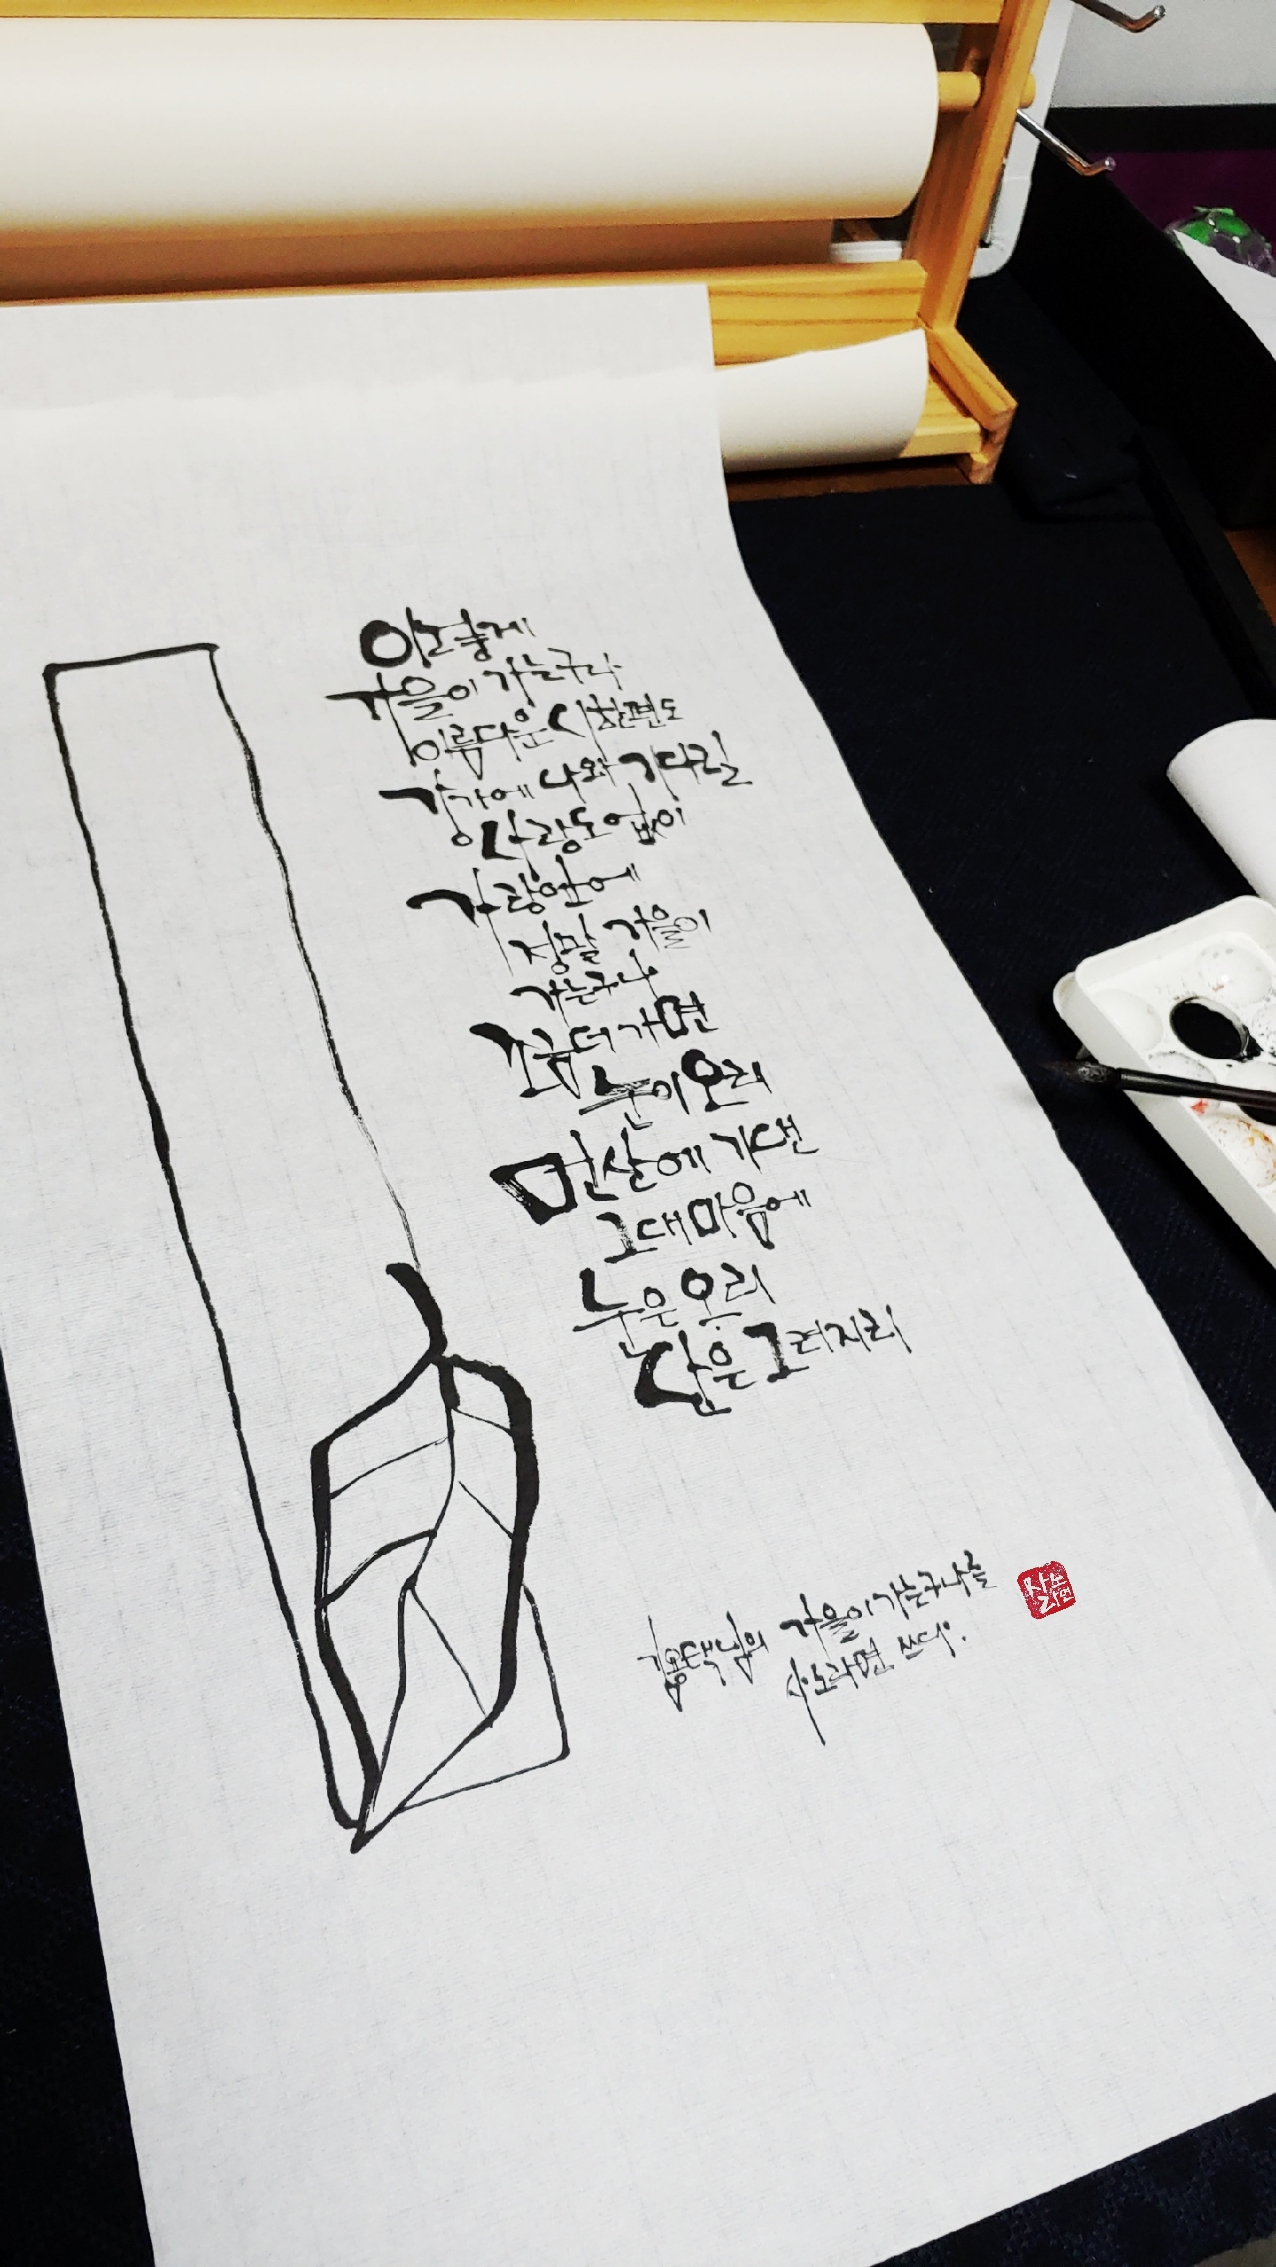 이렇게
가을이 가는구나
아름다운 시 한편도
강가에 나와 기다릴
사랑도 없이
가랑잎에
정말 가을이
가는구나
조금 더 가면
눈이 오리
먼 산에 기댄
그대 마음에
눈은 오리
산은 그려지리
김용택님의 가을이 가는구나를
사노라면 쓰다.
사노
라면